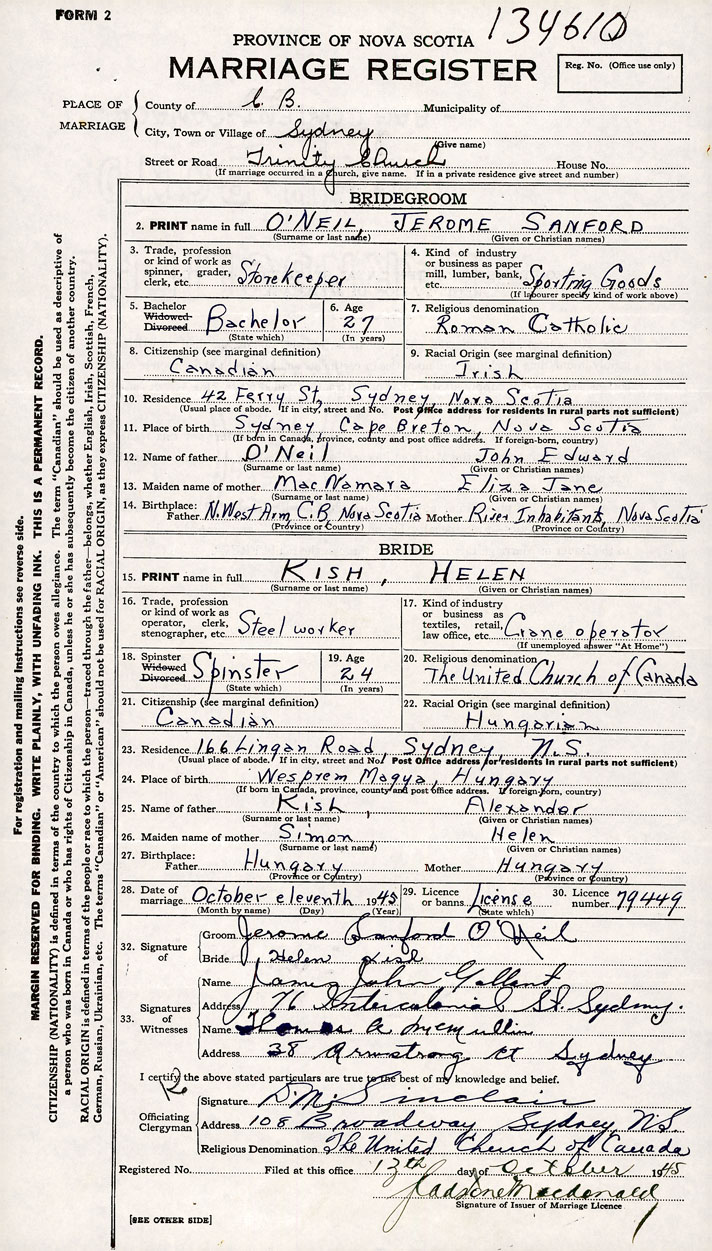 FORM 2
134610
PROVINCE OF NOVA SCOTIA
MARRIAGE REGISTER
Reg. No. (Office use only)
PLACE OF MARRIAGE
County of C. B. Municipality of
City, Town or Village of Sydney
(Give name)
Street or Road Trinity Church House No.
(If marriage occurred in a church, give name. If in a private residence give street and number)
BRIDEGROOM
2. PRINT name in full O'NEIL, JEROME SANFORD
(Surname or last name) (Given or Christian names)
3. Trade, profession or kind of work as spinner, grader, clerk, etc. Storekeeper
4. Kind of industry or business as paper mill, lumber, bank, etc. Sporting Goods
(If labourer specify kind of work above)
5. Bachelor Widowed Divorced Bachelor
(State which)
6. Age 27
(In years)
7. Religious denomination
Roman Catholic
8. Citizenship (see marginal definition)
Canadian
9. Racial Origin (see marginal definition)
Irish
10. Residence 42 Ferry St, Sydney, Nova Scotia
(Usual place of abode. If in city, street and No. Post Office address for residents in rural parts not sufficient)
11. Place of birth Sydney, Cape Breton, Nova Scotia
(If born in Canada, province, county and post office address. If foreign-born, country)
12. Name of father O'Neil John Edward
(Surname or last name) (Given or Christian names)
13. Maiden name of mother MacNamara Eliza Jane
(Surname or last name) (Given or Christian names)
14. Birthplace: Father N. West Arm, C.B, Nova Scotia Mother River Inhabitants, Nova Scotia
(Province or Country) (Province or Country)
BRIDE
15. PRINT name in full KISH, HELEN
(Surname or last name) (Given or Christian names)
16. Trade, profession or kind of work as operator, clerk, stenographer, etc. Steel worker
17. Kind of industry or business as textiles, retail, law office, etc. Crane operator
(If unemployed answer "At Home")
18. Spinster Widowed Divorced Spinster
(State which)
19. Age 24
(In years)
20. Religious denomination
The United Church of Canada
21. Citizenship (see marginal definition)
Canadian
22. Racial Origin (see marginal definition)
Hungarian
23. Residence 166 Lingan Road, Sydney, N.S.
(Usual place of abode. If in city, street and No. Post Office address for residents in rural parts not sufficient)
24. Place of birth Wesprem Magya, Hungary
(If born in Canada, province, county and post office address. If foreign-born, country)
25. Name of father Kish, Alexander
(Surname or last name) (Given or Christian names)
26. Maiden name of mother Simon, Helen
(Surname or last name) (Given or Christian names)
27. Birthplace: Father Hungary Mother Hungary
(Province or Country) (Province or Country)
28. Date of marriage October eleventh 1945
(Month by name) (Day) (Year)
29. Licence or banns License
(State which)
30. Licence number 79449
32. Signature of
Groom Jerome Sanford O'Neil
Bride Helen Kish
33. Signatures of Witnesses
Name James John Gallant
Address 76 Intercolonial St. Sydney.
Name Thomas A McMullin
Address 38 Armstrong Ct Sydney
I certify the above stated particulars are true to the best of my knowledge and belief.
Officiating Clergyman
Signature D. M. Sinclair
Address 108 Broadway Sydney, N.S.
Religious Denomination The United Church of Canada
Registered No. Filed at this office 13th day of October 1945
Macdonald
Signature of Issuer of Marriage Licence
[SEE OTHER SIDE]
For registration and mailing instructions see reverse side.
MARGIN RESERVED FOR BINDING. WRITE PLAINLY, WITH UNFADING INK. THIS IS A PERMANENT RECORD.
CITIZENSHIP (NATIONALITY) is defined in terms of the country to which the person owes allegiance. The term "Canadian" should be used as descriptive of
a person who was born in Canada or who has rights of Citizenship in Canada, unless he or she has subsequently become the citizen of another country.
RACIAL ORIGIN is defined in terms of the people or race to which the person—traced through the father—belongs, whether English, Irish, Scottish, French,
German, Russian, Ukrainian, etc. The terms "Canadian" or "American" should not be used for RACIAL ORIGIN, as they express CITIZENSHIP (NATIONALITY).